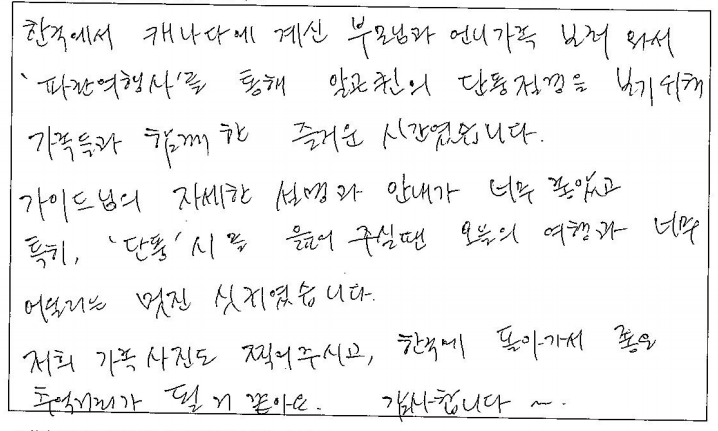 한국에서 캐나다에 계신 부모님과 언니가족 보러 와서
'파란여행사'를 통해 알곤퀸의 단풍절경을 보기위해
가족들과 함께 한 즐거운 시간였습니다.
가이드님의 자세한 설명과 안내가 너무 좋았고
특히, '단풍'시를 읊어 주실땐 오늘의 여행과 너무
어울리는 멋진 싯귀였습니다.
저희 가족사진도 찍어주시고, 한국에 돌아가서 좋은
추억거리가 될 거 같아요. 감사합니다 ~.